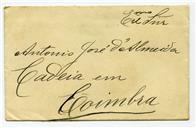 Exmo Snr
Antonio José d'Almeida
Cadeia em
Coimbra